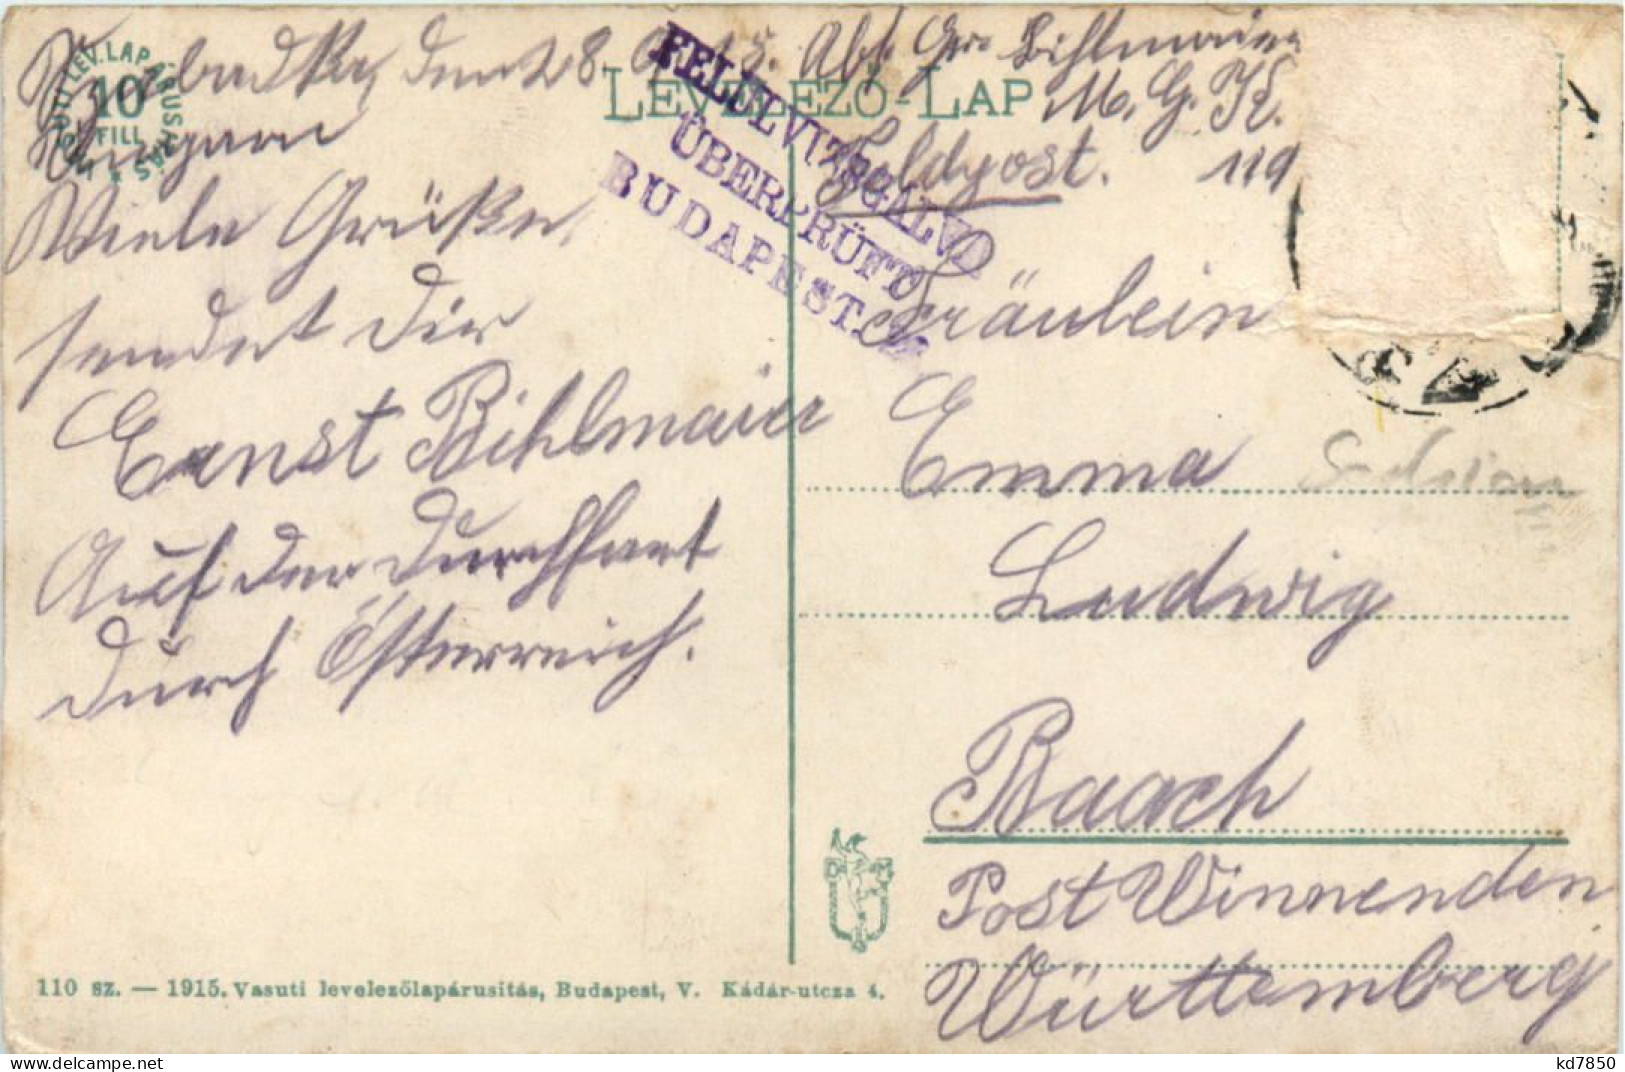 Szabadka, den 28. 9. 15. Abs. Gre. Bihlmaier
Ungarn
M. G. K.
Feldpost. 119
VASUTI LEV. LAP ÁRUSITÁS
10
FILL
LEVELEZŐ-LAP
FELÜLVIZSGÁLVA
ÜBERPRÜFT
BUDAPEST.
Viele Grüße
sendet dir
Ernst Bihlmaier
Auf der Durchfart
durch Österreich.
Fräulein
Emma
Ludwig
Baach
Post Winnenden
Württemberg
110 sz. — 1915. Vasuti levelezőlapárusitás, Budapest, V. Kádár-utcza 4.
kd7850